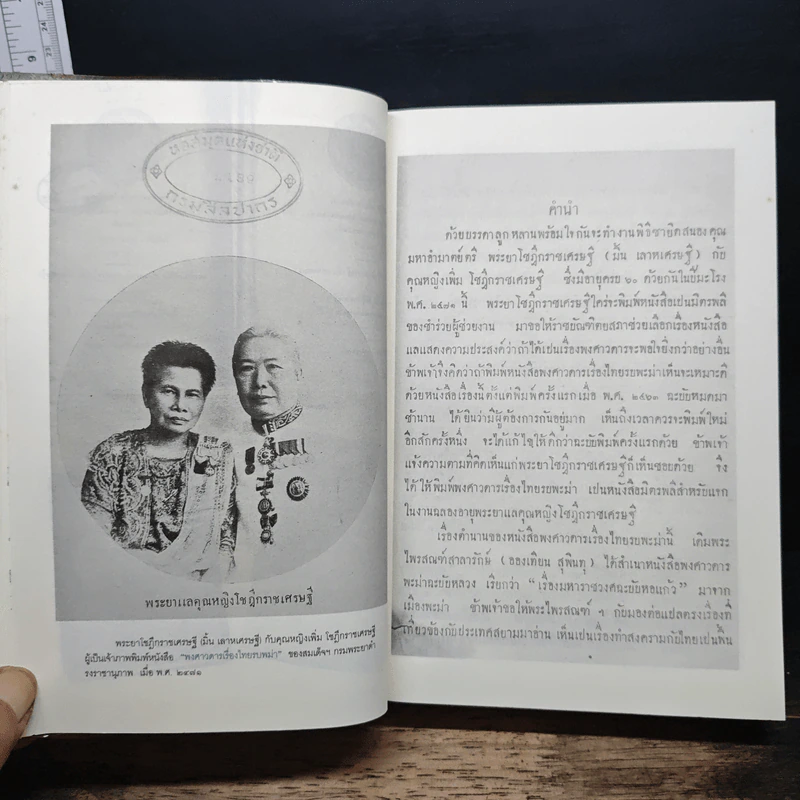 หอสมุดแห่งชาติ
กรมศิลปากร
พระยาแลคุณหญิงโชฎึกราชเศรษฐี
พระยาโชฎึกราชเศรษฐี (มิ้น เลาหเศรษฐี) กับคุณหญิงเพิ่ม โชฎึกราชเศรษฐี
ผู้เป็นเจ้าภาพพิมพ์หนังสือ "พงศาวดารเรื่องไทยรบพม่า" ของสมเด็จฯ กรมพระยาดำ
รงราชานุภาพ เมื่อ พ.ศ. ๒๔๗๑
คำนำ
ด้วยบรรดาลูกหลานพร้อมใจกันจะทำงานพิธีซายิดสนองคุณ
มหาอำมาตย์ตรี พระยาโชฎึกราชเศรษฐี (มิ้น เลาหเศรษฐี) กับ
คุณหญิงเพิ่ม โชฎึกราชเศรษฐี ซึ่งมีอายุครบ ๖๐ ด้วยกันในปีมะโรง
พ.ศ. ๒๔๗๑ นี้ พระยาโชฎึกราชเศรษฐีใคร่จะพิมพ์หนังสือเปนมิตรพลี
ของชำร่วยผู้ช่วยงาน มาขอให้ราชบัณฑิตยสภาช่วยเลือกเรื่องหนังสือ
แลแสดงความประสงค์ว่าถ้าได้เปนเรื่องพงศาวดารจะพอใจยิ่งกว่าอย่างอื่น
ข้าพเจ้าจึงคิดว่าถ้าพิมพ์หนังสือพงศาวดารเรื่องไทยรบพม่าเห็นจะเหมาะดี
ด้วยหนังสือเรื่องนี้ตั้งแต่พิมพ์ครั้งแรกเมื่อ พ.ศ. ๒๔๖๓ ฉะบับหมดมา
ช้านาน ได้ยินว่ามีผู้ต้องการกันอยู่มาก เห็นถึงเวลาควรจะพิมพ์ใหม่
อีกสักครั้งหนึ่ง จะได้แก้ไขให้ดีกว่าฉะบับพิมพ์ครั้งแรกด้วย ข้าพเจ้า
แจ้งความตามที่คิดเห็นแก่พระยาโชฎึกราชเศรษฐีก็เห็นชอบด้วย จึง
ได้ให้พิมพ์พงศาวดารเรื่องไทยรบพม่า เปนหนังสือมิตรพลีสำหรับแจก
ในงานฉลองอายุพระยาแลคุณหญิงโชฎึกราชเศรษฐี
เรื่องตำนานของหนังสือพงศาวดารเรื่องไทยรบพม่านี้ เดิมพระ
ไพรสณฑ์สาลารักษ์ (อองเทียน สุพินทุ) ได้สำเนาหนังสือพงศาวดาร
พะม่าฉะบับหลวง เรียกว่า "เรื่องมหาราชวงศฉะบับหอแก้ว" มาจาก
เมืองพะม่า ข้าพเจ้าขอให้พระไพรสณฑ์ ฯ กับมองต่อแปลตรงเรื่องที่
เกี่ยวข้องกับประเทศสยามมาอ่าน เห็นเปนเรื่องทำสงครามกับไทยเปนพื้น